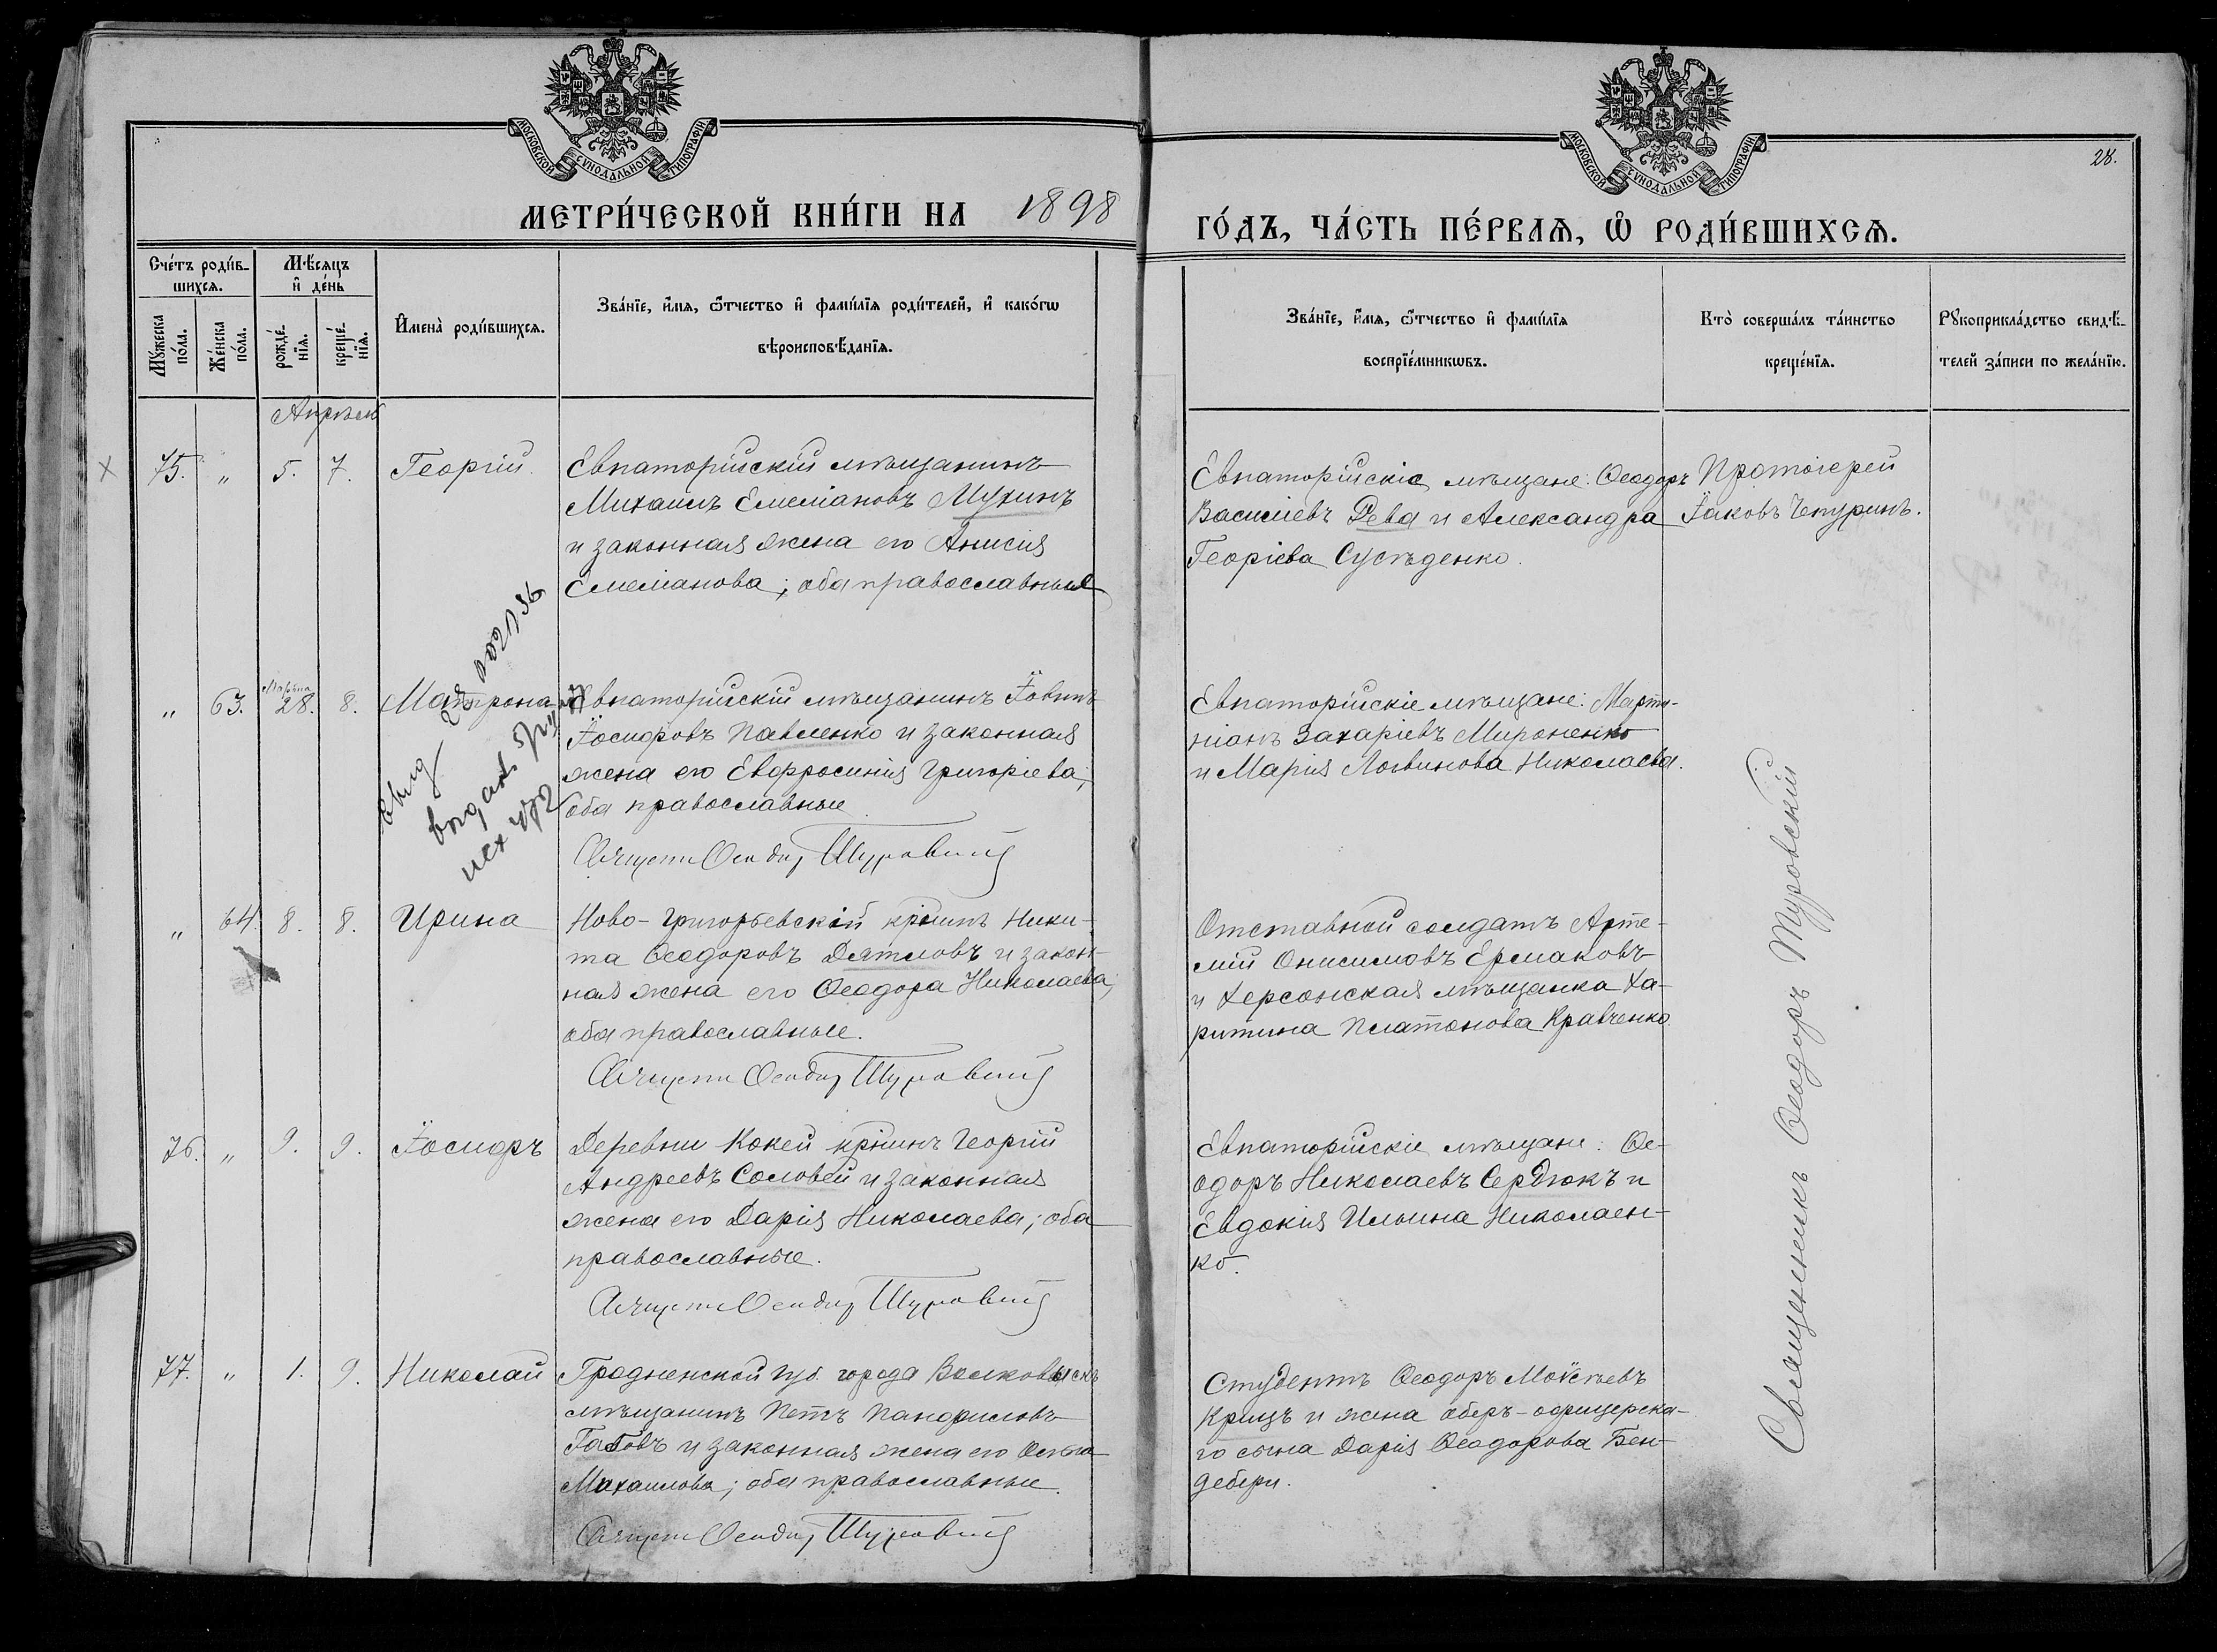 МОСКОВСКОЙ СѴНОДАЛЬНОЙ ТИПОГРАФІИ
МОСКОВСКОЙ СѴНОДАЛЬНОЙ ТИПОГРАФІИ
28.
МЕТРИ́ЧЕСКОЙ КНИ́ГИ НА 1898
ГО́ДЪ, ЧА́СТЬ ПЕ́РВАѦ, Ѡ҆ РОДИ́ВШИХСѦ.
Сче́тъ роди́в-
шихсѧ.
Мꙋ́жеска
по́ла.
Же́нска
по́ла.
Мѣ́сѧцъ
и҆ де́нь
рожде́-
нїѧ.
креще́-
нїѧ.
И҆мена̀ роди́вшихсѧ.
Зва́нїе, и҆́мѧ, ѻ҆́тчество и҆ фами́лїѧ роди́телей, и҆ како́гѡ
вѣроисповѣ́данїѧ.
Зва́нїе, и҆́мѧ, ѻ҆́тчество и҆ фами́лїѧ
воспрїе́мникѡвъ.
Кто̀ соверша́лъ та́инство
креще́нїѧ.
Рꙋкоприкла́дство свидѣ́-
телей за́писи по жела́нїю.
Апрѣль
75. " 5. 7. Георгій
Евпаторійскій мѣщанинъ
Михаилъ Емеліановъ Мухинъ
и законная жена его Анисія
Емеліанова; оба православные
Евпаторійскіе мѣщане: Ѳеодоръ
Василіевъ Дева и Александра
Георгіева Сусѣденко.
Протоіерей
Іаковъ Чепуринъ.
" 63. Марта 28. 8. Матрона
Евпаторійскій мѣщанинъ Іовинъ
Іосифовъ Павленко и законная
жена его Евфросинія Григоріева;
оба православные
Евпаторійскіе мѣщане: Марти-
ніанъ Захаріевъ Мироненко
и Марія Логвинова Николаева.
выдан
исх
" 64. 8. 8. Ирина
Ново-Григорьевскій кр̃нинъ Ники-
та Ѳеодоровъ Дятловъ и закон-
ная жена его Ѳеодора Николаева;
оба православные.
Отставной солдатъ Арте-
мій Онисимовъ Ермаковъ
и Херсонская мѣщанка Ха-
ритина Платонова Кравченко
76. " 9. 9. Іосифъ
Деревни Кокей кр̃нинъ Георгій
Андреевъ Соловей и законная
жена его Дарія Николаева; оба
православные.
Евпаторійскіе мѣщане: Ѳе-
одоръ Николаевъ Сердюкъ и
Евдокія Ильина Николаен-
ко.
77. " 1. 9. Николай
Гродненской губ. города Волковыскъ
мѣщанинъ Петръ Панфиловъ
Габовъ и законная жена его Ольга
Михаилова; оба православные.
Студентъ Ѳеодоръ Моѵсѣевъ
Крицъ и жена оберъ-офицерска-
го сына Дарія Ѳеодорова Бен-
дебери.
Священникъ Ѳеодоръ Туровскій